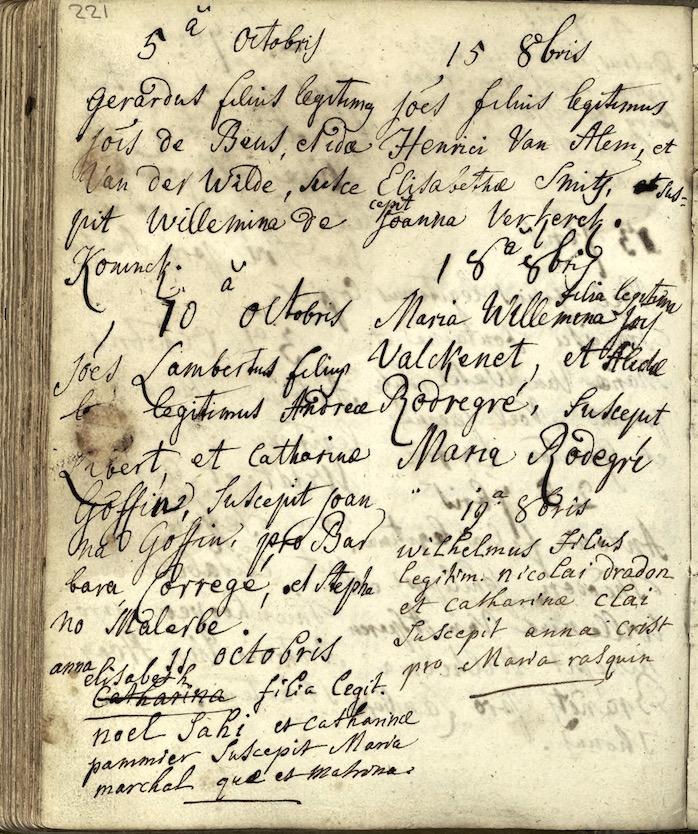 221
5 a octobris
Gerardus filius legitimq
joes de Beus, et idae
Van der Wilde, susce
pit Willemina de
Koninck.
10 a octobris
joes Lambertus filius
legitimus Andreae
Libert, et Catharinae
Goffin, suscepit joan
na Goffin, pro Bar
bara Correge, et stepha
no Malerbe.
11 octobris
anna elisabeth
Catharina filia legit.
noel Sahi et catharinae
pammier suscepit Maria
marchal quae et matrona.
15 8bris
joes filius legitimus
Henrici Van Alem, et
Elisabethae Smitz, et sus=
cepit
joanna Verkerck.
18 a 8bris
filia legitima
Maria Willemina jois
Valckenet, et Alidae
Rodregré, suscepit
Maria Rodegré
19 a 8bris
wilhelmus filius
legitim. nicolai dradon
et catharinae clai
suscepit anna crist
pro Maria rasquin